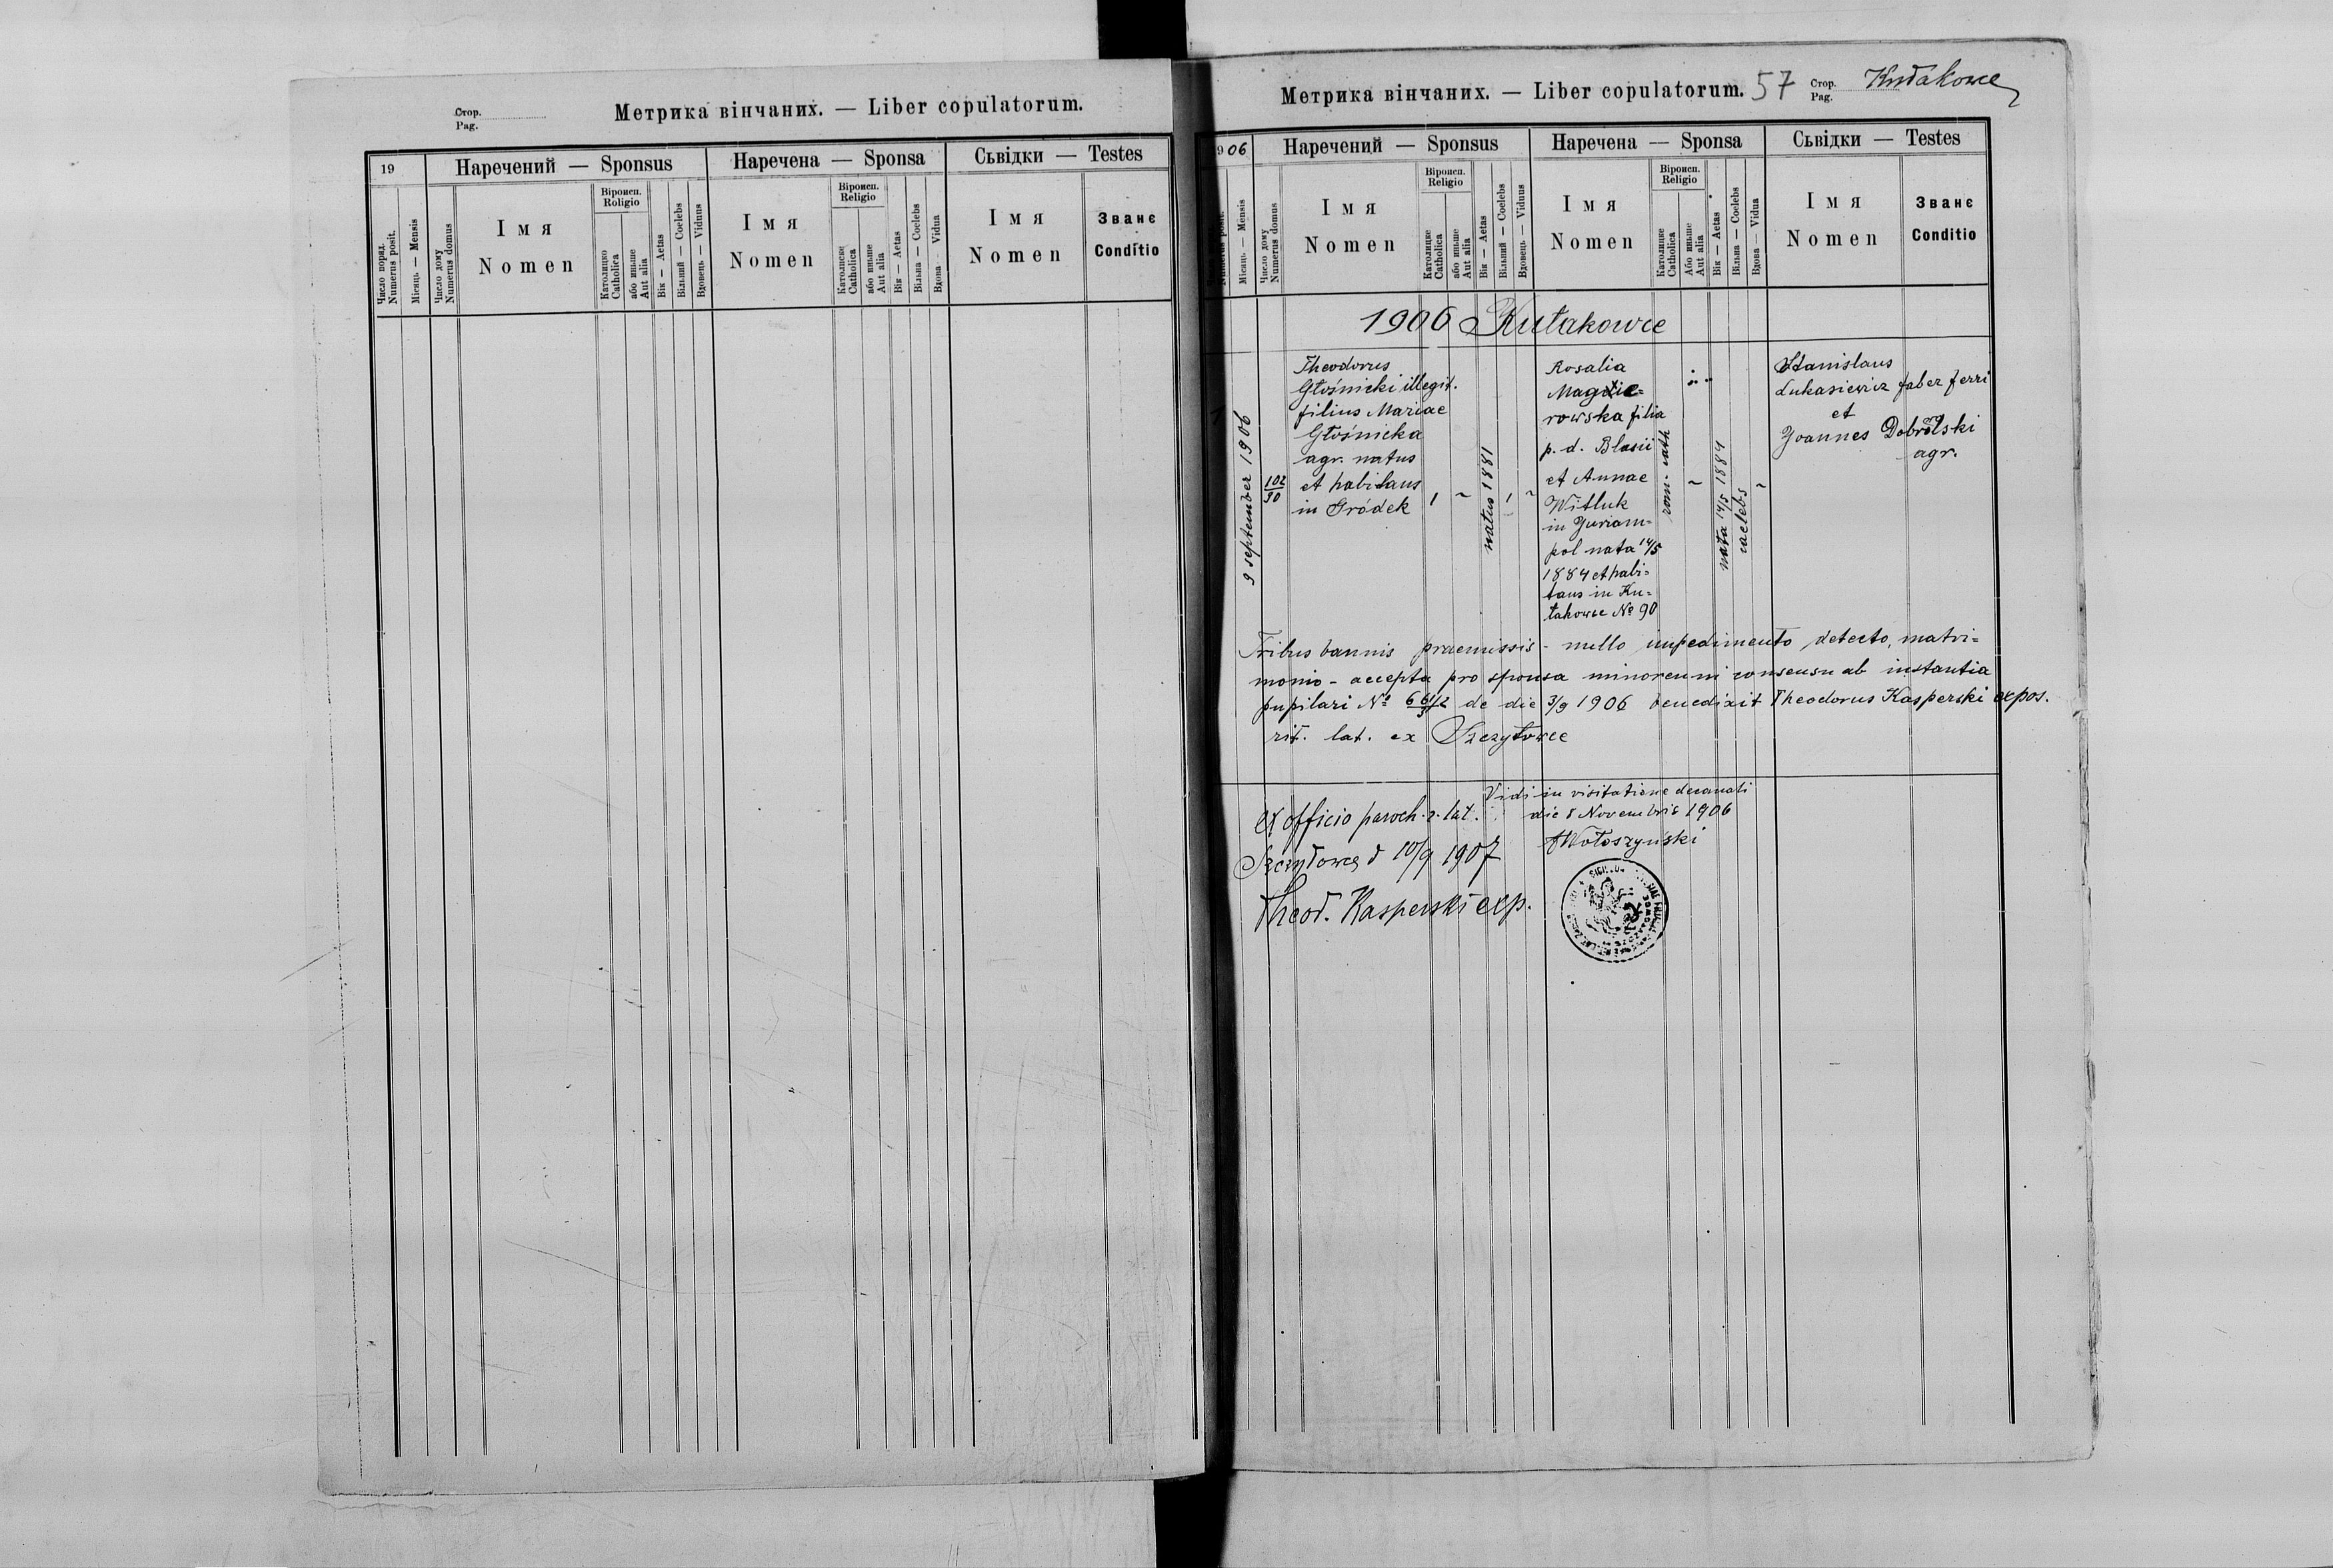 Стор.
Pag.
Метрика вінчаних. — Liber copulatorum.
19
Наречений — Sponsus
Наречена — Sponsa
Сьвідки — Testes
Число поряд.
Numerus posit.
Місяць — Mensis
Число дому
Numerus domus
Імя
Nomen
Віроисп.
Religio
Католицке
Catholica
або иньше
Aut alia
Вік — Aetas
Вільний — Coelebs
Вдовець — Viduus
Імя
Nomen
Віроисп.
Religio
Католицке
Catholica
або иньше
Aut alia
Вік — Aetas
Вільна — Coelebs
Вдова — Vidua
Імя
Nomen
Званє
Conditio
Метрика вінчаних. — Liber copulatorum. 57
Стор.
Pag.
Kułakowce
906
Наречений — Sponsus
Наречена — Sponsa
Сьвідки — Testes
Numerus posit.
Місяць — Mensis
Число дому
Numerus domus
Імя
Nomen
Віроисп.
Religio
Католицке
Catholica
або иньше
Aut alia
Вік — Aetas
Вільний — Coelebs
Вдовець — Viduus
Імя
Nomen
Віроисп.
Religio
Католицке
Catholica
Або иньше
Aut alia
Вік — Aetas
Вільна — Coelebs
Вдова — Vidua
Імя
Nomen
Званє
Conditio
1906 Kułakowce
1
9 september 1906
102
90
Theodorus
Głośnicki illegit.
filius Mariae
Głośnicka
agr. natus
et habitans
in Gródek
1
~
natus 1881
1
~
Rosalia
Magie=
rowska filia
p. d. Blasii
et Annae
Witluk
in Juriam=
pol nata 14/5
1884 et habi=
tans in Ku=
łakowce № 90
rom. cath
~
nata 14/5 1884
caelebs
~
Stanislaus
Łukasiewicz faber ferri
et
Joannes Dobrolski
agr.
Tribus bannis praemissis - nullo impedimento detecto, matri=
monio - accepta pro sponsa minorenni consensu ab instantia
pupilari № de die 3/9 1906 benedixit Theodorus Kasperski expos.
rit. lat. ex Szczytowce
Ex officio paroch. r. lat.
Szczytowce d 10/9 1907
Theod. Kasperski exp.
Vidi in visitatione decanali
die 8 Novembris 1906
Wołoszyński